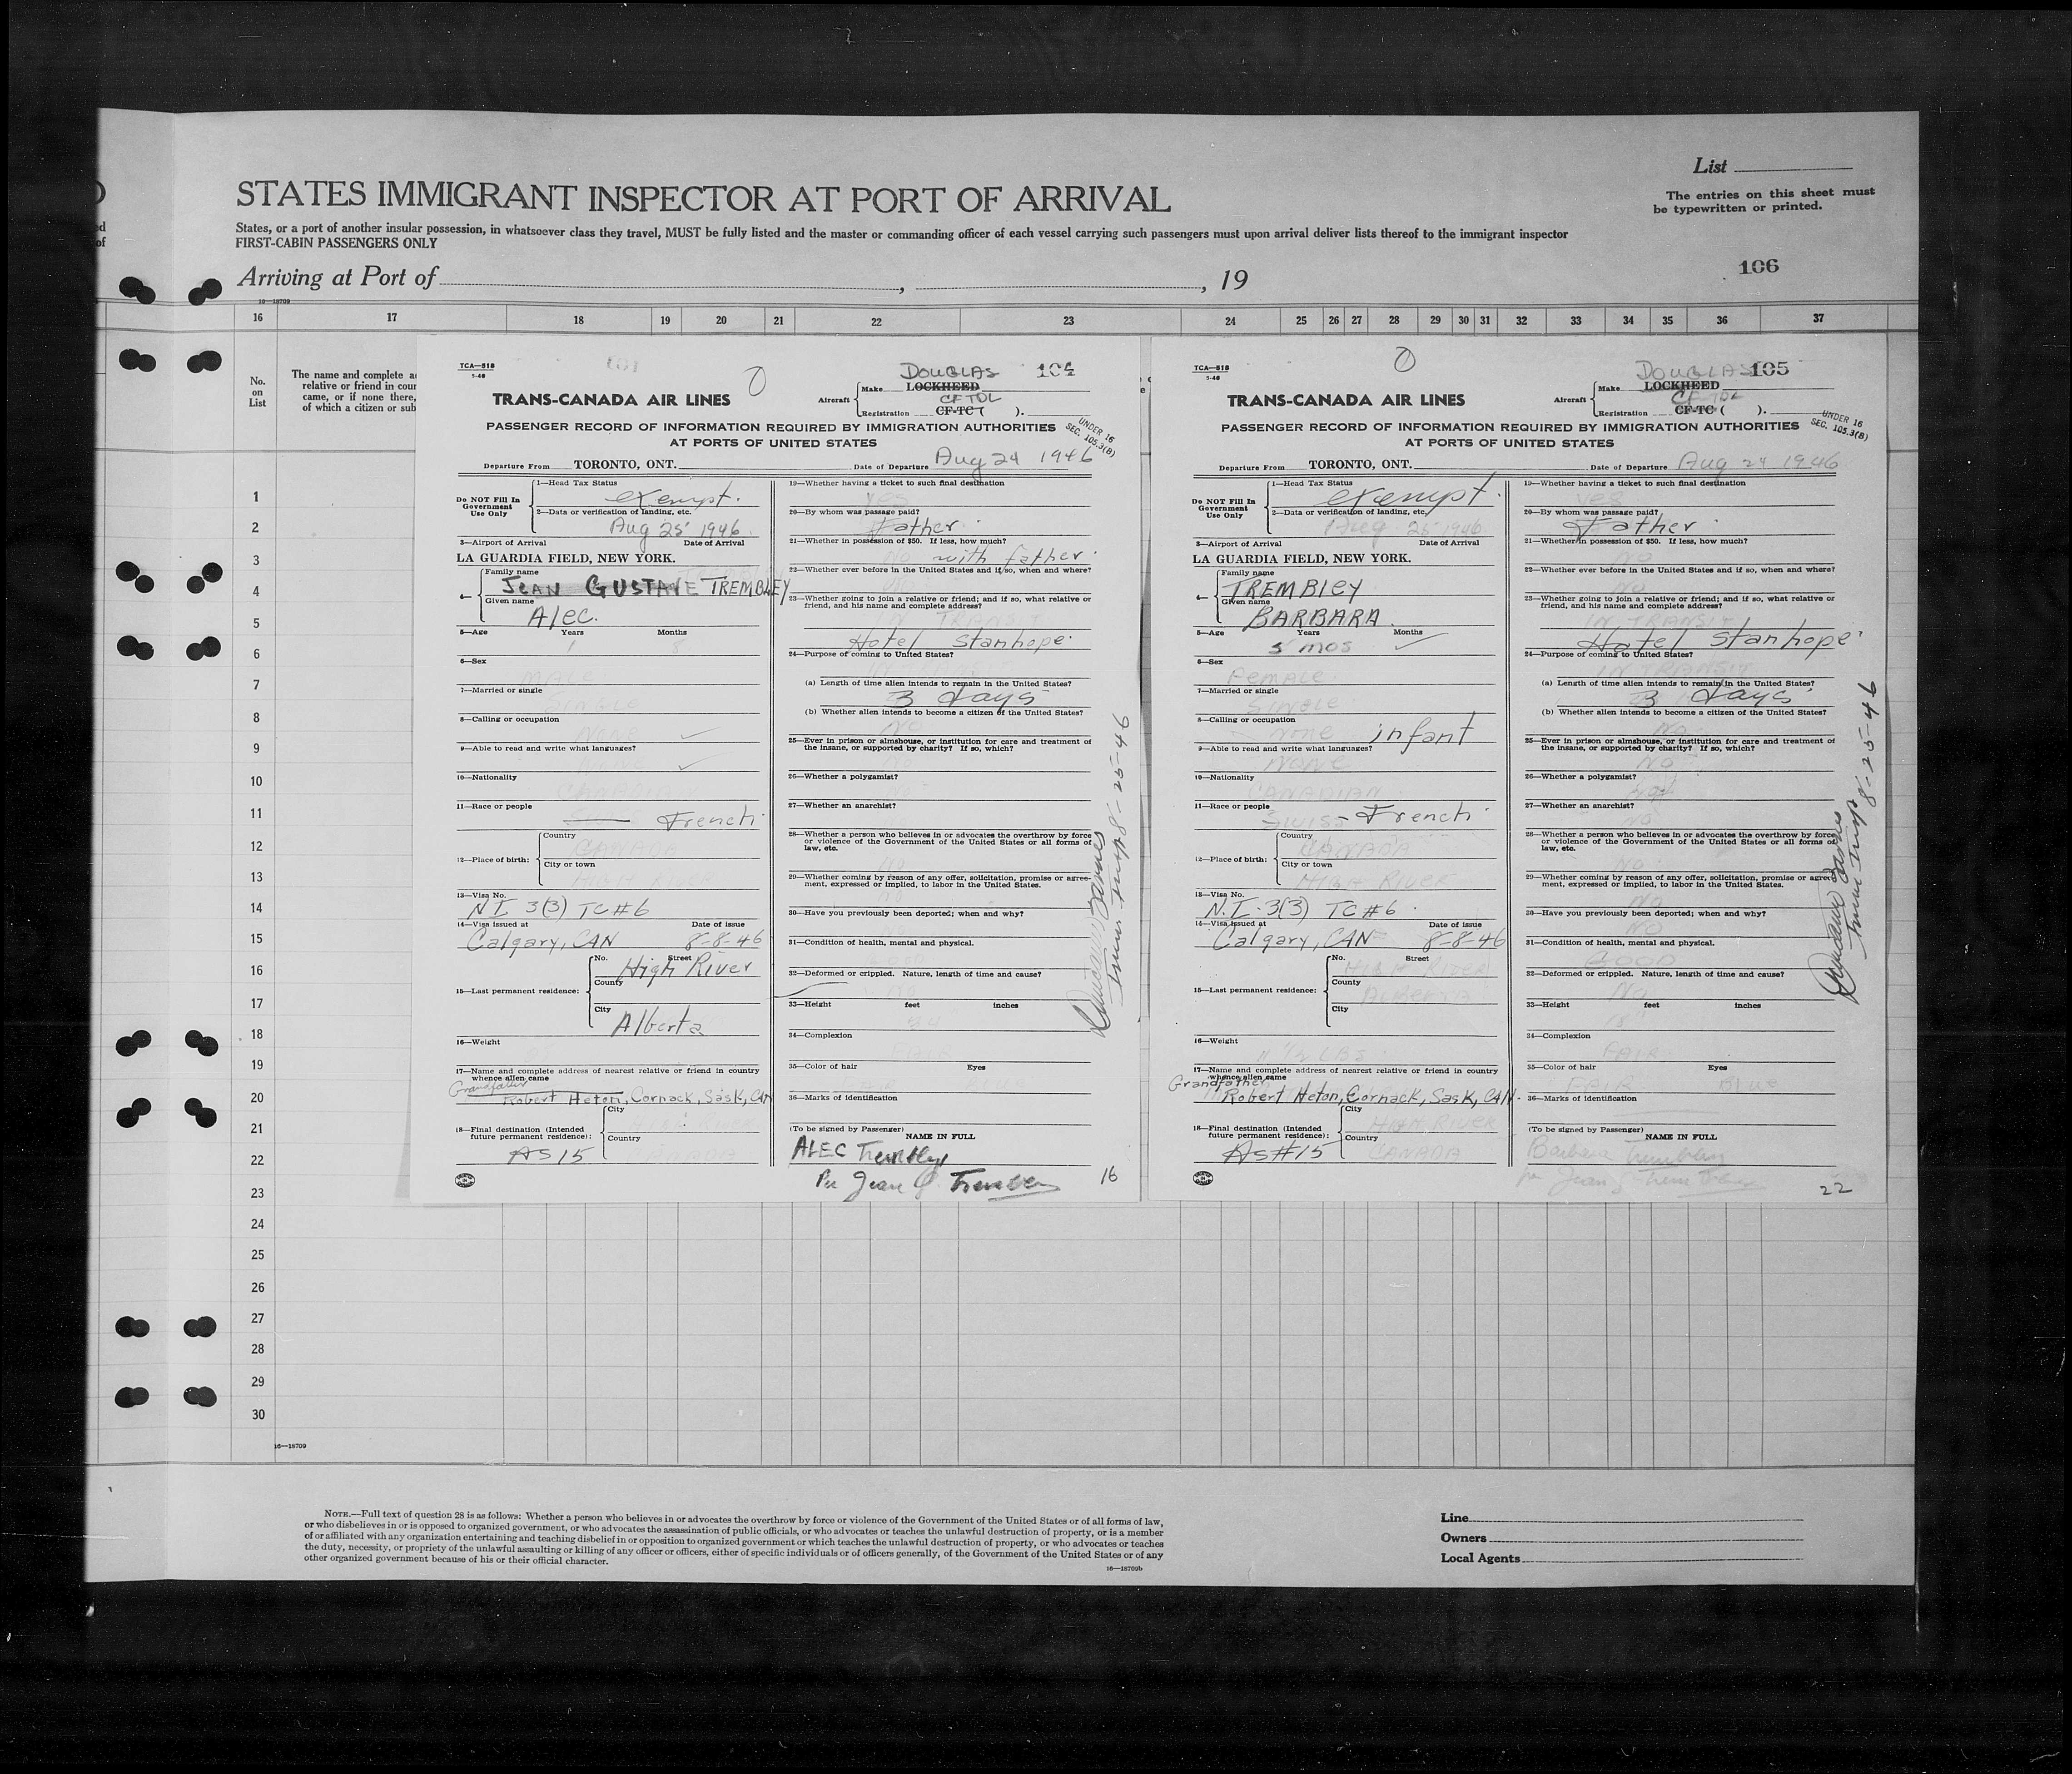 List
STATES IMMIGRANT INSPECTOR AT PORT OF ARRIVAL
The entries on this sheet must
be typewritten or printed.
States, or a port of another insular possession, in whatsoever class they travel, MUST be fully listed and the master or commanding officer of each vessel carrying such passengers must upon arrival deliver lists thereof to the immigrant inspector
FIRST-CABIN PASSENGERS ONLY
Arriving at Port of , , 19
106
16—18709
16 17 18 19 20 21 22 23 24 25 26 27 28 29 30 31 32 33 34 35 36 37
No.
on
List
The name and complete a
relative or friend in cour
came, or if none there,
of which a citizen or sub
TCA—518
5-46
DOUGLAS 104
Aircraft Make LOCKHEED
CF TDL
Registration CF-TC ( ).
TRANS-CANADA AIR LINES
PASSENGER RECORD OF INFORMATION REQUIRED BY IMMIGRATION AUTHORITIES
AT PORTS OF UNITED STATES
UNDER 16
SEC. 105.3(B)
Departure From TORONTO, ONT. Date of Departure Aug 24 1946
Do NOT Fill In
Government
Use Only
1—Head Tax Status
exempt.
2—Data or verification of landing, etc.
Aug 25 1946
3—Airport of Arrival Date of Arrival
LA GUARDIA FIELD, NEW YORK.
4— Family name
JEAN GUSTAVE TREMBLEY
Given name
Alec.
5—Age Years Months
1 8
6—Sex
MALE
7—Married or single
SINGLE
8—Calling or occupation
NONE
9—Able to read and write what languages?
NONE
10—Nationality
CANADIAN
11—Race or people
French
12—Place of birth: Country
CANADA
City or town
HIGH RIVER
13—Visa No.
NI 3(3) TC#6
14—Visa issued at Date of issue
Calgary, CAN 8-8-46
15—Last permanent residence: No. Street
High River
County
City
Alberta
16—Weight
17—Name and complete address of nearest relative or friend in country
whence alien came
Grandfather
Robert Heton, Cornack, Sask, CAN
18—Final destination (Intended
future permanent residence): City
HIGH RIVER
Country
AS 15 CANADA
19—Whether having a ticket to such final destination
Yes
20—By whom was passage paid?
Father
21—Whether in possession of $50. If less, how much?
No with father.
22—Whether ever before in the United States and if so, when and where?
23—Whether going to join a relative or friend; and if so, what relative or
friend, and his name and complete address?
IN TRANSIT
Hotel Stanhope.
24—Purpose of coming to United States?
(a) Length of time alien intends to remain in the United States?
3 days
(b) Whether alien intends to become a citizen of the United States?
NO
25—Ever in prison or almshouse, or institution for care and treatment of
the insane, or supported by charity? If so, which?
26—Whether a polygamist?
27—Whether an anarchist?
28—Whether a person who believes in or advocates the overthrow by force
or violence of the Government of the United States or all forms of
law, etc.
No
29—Whether coming by reason of any offer, solicitation, promise or agree-
ment, expressed or implied, to labor in the United States.
30—Have you previously been deported; when and why?
31—Condition of health, mental and physical.
GOOD
32—Deformed or crippled. Nature, length of time and cause?
No
33—Height feet inches
34—Complexion
FAIR
35—Color of hair Eyes
FAIR
36—Marks of identification
(To be signed by Passenger)
NAME IN FULL
ALEC Trembley
Per Jean G. Trembley
16
8-25-46
TCA—518
5-46
DOUGLAS 105
Aircraft Make LOCKHEED
CF TDL
Registration CF-TC ( ).
TRANS-CANADA AIR LINES
PASSENGER RECORD OF INFORMATION REQUIRED BY IMMIGRATION AUTHORITIES
AT PORTS OF UNITED STATES
UNDER 16
SEC. 105.3(B)
Departure From TORONTO, ONT. Date of Departure Aug 24 1946
Do NOT Fill In
Government
Use Only
1—Head Tax Status
exempt.
2—Data or verification of landing, etc.
Aug 25 1946
3—Airport of Arrival Date of Arrival
LA GUARDIA FIELD, NEW YORK.
4— Family name
TREMBLEY
Given name
BARBARA
5—Age Years Months
5 mos
6—Sex
FEMALE
7—Married or single
SINGLE
8—Calling or occupation
NONE infant
9—Able to read and write what languages?
NONE
10—Nationality
CANADIAN
11—Race or people
SWISS - French
12—Place of birth: Country
CANADA
City or town
HIGH RIVER
13—Visa No.
N.I. 3(3) TC#6
14—Visa issued at Date of issue
Calgary, CAN 8-8-46
15—Last permanent residence: No. Street
HIGH RIVER
County
ALBERTA
City
16—Weight
11 1/2 LBS
17—Name and complete address of nearest relative or friend in country
whence alien came
Grandfather
Robert Heton, Cornack, Sask, CAN.
18—Final destination (Intended
future permanent residence): City
HIGH RIVER
Country
As#15 CANADA
19—Whether having a ticket to such final destination
Yes
20—By whom was passage paid?
Father
21—Whether in possession of $50. If less, how much?
No
22—Whether ever before in the United States and if so, when and where?
No
23—Whether going to join a relative or friend; and if so, what relative or
friend, and his name and complete address?
IN TRANSIT
Hotel Stanhope.
24—Purpose of coming to United States?
TRANSIT
(a) Length of time alien intends to remain in the United States?
3 days.
(b) Whether alien intends to become a citizen of the United States?
No
25—Ever in prison or almshouse, or institution for care and treatment of
the insane, or supported by charity? If so, which?
NO
26—Whether a polygamist?
27—Whether an anarchist?
NO
28—Whether a person who believes in or advocates the overthrow by force
or violence of the Government of the United States or all forms of
law, etc.
No
29—Whether coming by reason of any offer, solicitation, promise or agree-
ment, expressed or implied, to labor in the United States.
No
30—Have you previously been deported; when and why?
NO
31—Condition of health, mental and physical.
GOOD
32—Deformed or crippled. Nature, length of time and cause?
No
33—Height feet inches
34—Complexion
FAIR
35—Color of hair Eyes
FAIR Blue
36—Marks of identification
(To be signed by Passenger)
NAME IN FULL
Barbara Trembley
per Jean G Trembley
22
8-25-46
1
2
3
4
5
6
7
8
9
10
11
12
13
14
15
16
17
18
19
20
21
22
23
24
25
26
27
28
29
30
16—18709
NOTE.—Full text of question 28 is as follows: Whether a person who believes in or advocates the overthrow by force or violence of the Government of the United States or of all forms of law,
or who disbelieves in or is opposed to organized government, or who advocates the assassination of public officials, or who advocates or teaches the unlawful destruction of property, or is a member
of or affiliated with any organization entertaining and teaching disbelief in or opposition to organized government or which teaches the unlawful destruction of property, or who advocates or teaches
the duty, necessity, or propriety of the unlawful assaulting or killing of any officer or officers, either of specific individuals or of officers generally, of the Government of the United States or of any
other organized government because of his or their official character.
16—18709b
Line
Owners
Local Agents